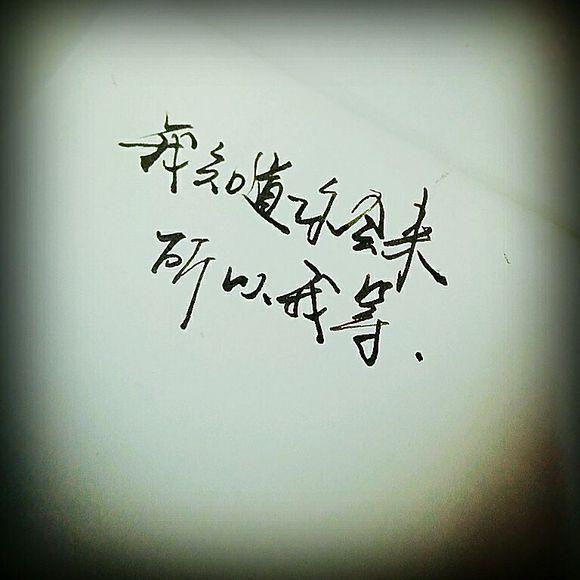 我知道你会来
所以我等.